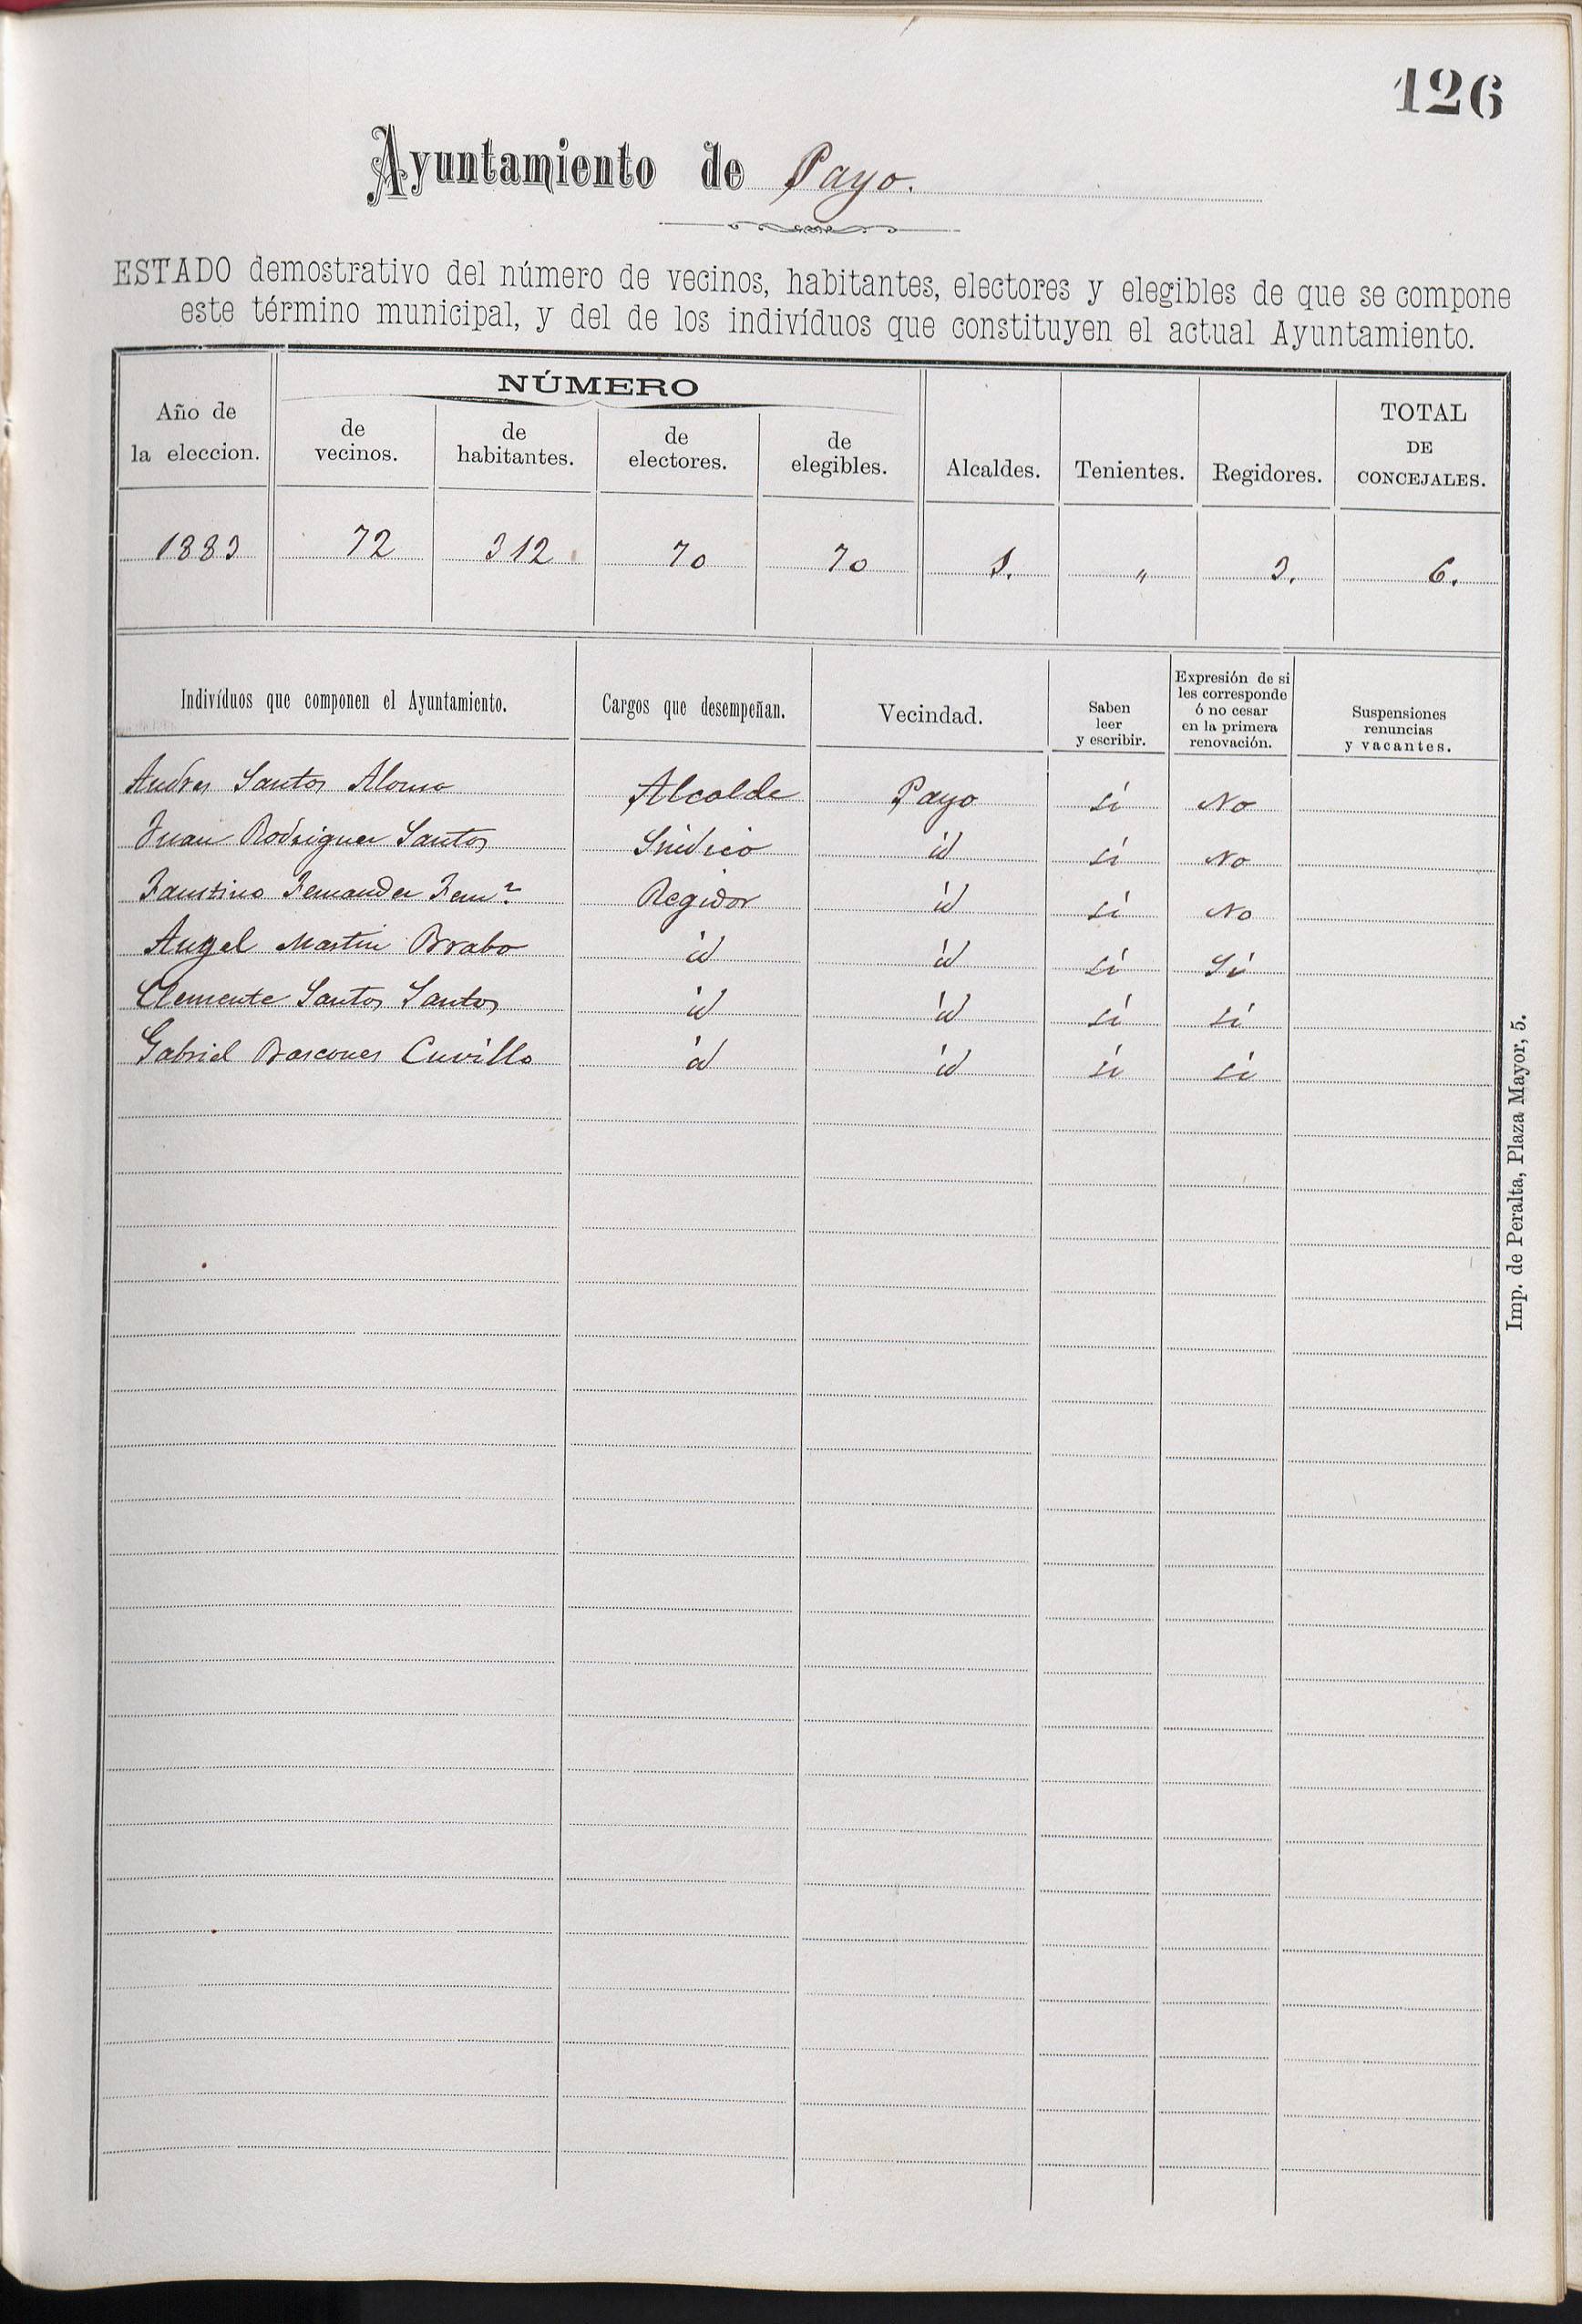 126
Ayuntamiento de Payo.
ESTADO demostrativo del número de vecinos, habitantes, electores y elegibles de que se compone
este término municipal, y del de los indivíduos que constituyen el actual Ayuntamiento.
Año de la eleccion. NÚMERO de vecinos. de habitantes. de electores. de elegibles. Alcaldes. Tenientes. Regidores. TOTAL DE CONCEJALES.
1883 72 312 70 70 1. " 3. 6.
Indivíduos que componen el Ayuntamiento. Cargos que desempeñan. Vecindad. Saben leer y escribir. Expresión de si les corresponde ó no cesar en la primera renovación. Suspensiones renuncias y vacantes.
Andres Santos Alonso Alcalde Payo si No
Juan Rodriguez Santos Sindico id si No
Faustino Fernandez Fernz Regidor id si No
Angel Martin Brabo id id si Si
Clemente Santos Santos id id si si
Gabriel Bascones Cuvillo id id si si
Imp. de Peralta, Plaza Mayor, 5.